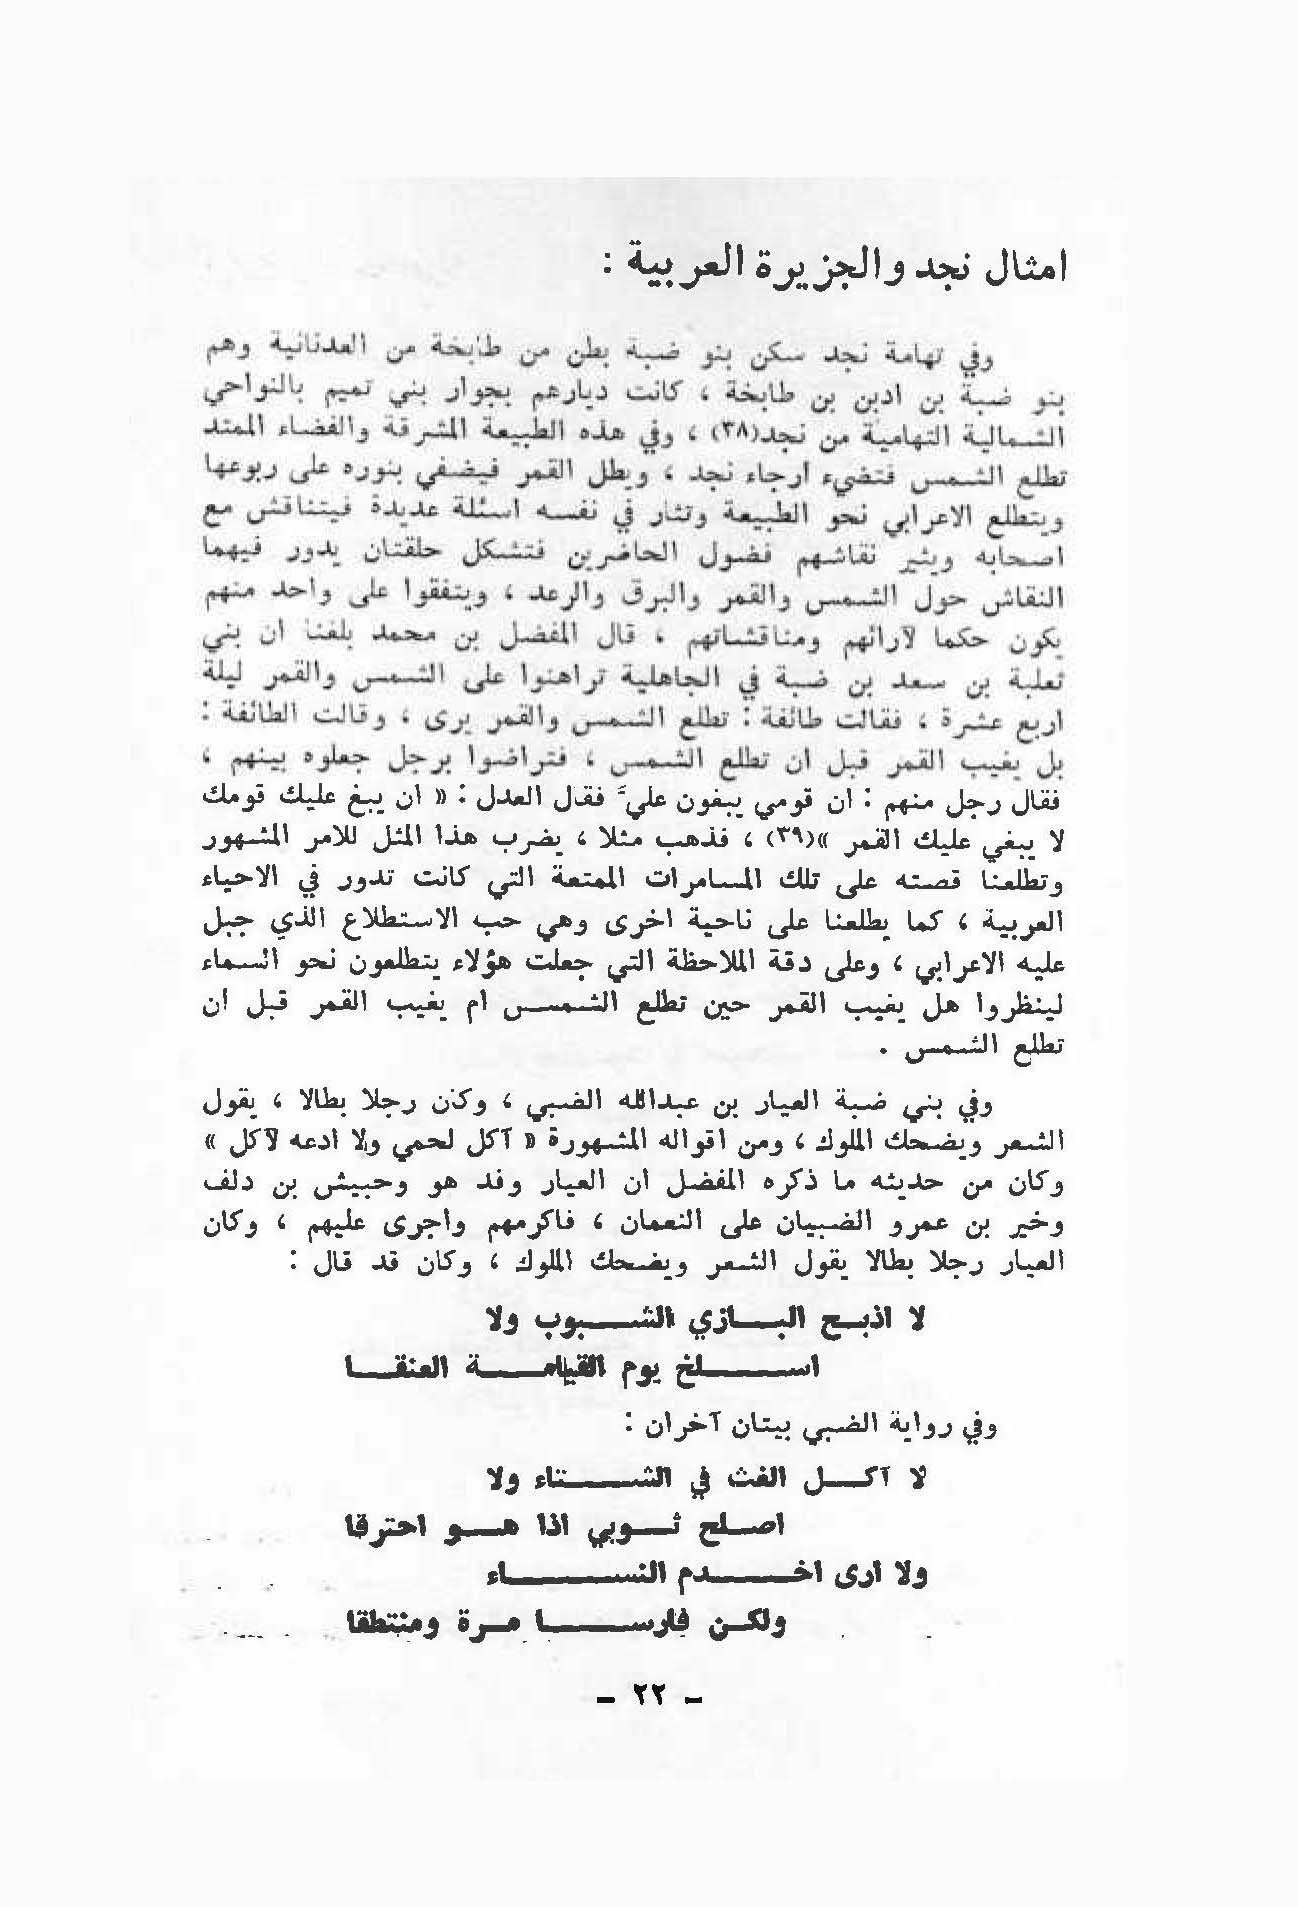 امثال نجد والجزيرة العربية :
وفي تهامة نجد سكن بنو ضبة بطن من طابخة من العدنانية وهم
بنو ضبة بن ادبن بن طابخة ، كانت ديارهم بجوار بني تميم بالنواحي
الشمالية التهامية من نجد(٣٨) ، وفي هذه الطبيعة المشرقة والفضاء الممتد
تطلع الشمس فتضيء ارجاء نجد ، ويطل القمر فيضفي بنوره على ربوعها
ويتطلع الاعرابي نحو الطبيعة وتثار في نفسه اسئلة عديدة فيتناقش مع
اصحابه ويثير نقاشهم فضول الحاضرين فتشكل حلقتان يدور فيهما
النقاش حول الشمس والقمر والبرق والرعد ، ويتفقوا على واحد منهم
يكون حكما لآرائهم ومناقشاتهم ، قال المفضل بن محمد بلغنا ان بني
ثعلبة بن سعد بن ضبة في الجاهلية تراهنوا على الشمس والقمر ليلة
اربع عشرة ، فقالت طائفة : تطلع الشمس والقمر يرى ، وقالت الطائفة :
بل يغيب القمر قبل ان تطلع الشمس ، فتراضوا برجل جعلوه بينهم ،
فقال رجل منهم : ان قومي يبغون عليَّ فقال العدل : « ان يبغ عليك قومك
لا يبغي عليك القمر »(٣٩) ، فذهب مثلا ، يضرب هذا المثل للامر المشهور
وتطلعنا قصته على تلك المسامرات الممتعة التي كانت تدور في الاحياء
العربية ، كما يطلعنا على ناحية اخرى وهي حب الاستطلاع الذي جبل
عليه الاعرابي ، وعلى دقة الملاحظة التي جعلت هؤلاء يتطلعون نحو السماء
لينظروا هل يغيب القمر حين تطلع الشمس ام يغيب القمر قبل ان
تطلع الشمس .
وفي بني ضبة العيار بن عبدالله الضبي ، وكان رجلا بطالا ، يقول
الشعر ويضحك الملوك ، ومن اقواله المشهورة « آكل لحمي ولا ادعه لآكل »
وكان من حديثه ما ذكره المفضل ان العيار وفد هو وحبيش بن دلف
وخير بن عمرو الضبيان على النعمان ، فاكرمهم واجرى عليهم ، وكان
العيار رجلا بطالا يقول الشعر ويضحك الملوك ، وكان قد قال :
لا اذبح البازي الشبوب ولا
اسلخ يوم القيامة العنقا
وفي رواية الضبي بيتان آخران :
لا آكل الغث في الشتاء ولا
اصلح ثوبي اذا هو احترقا
ولا ارى اخدم النساء
ولكن فارسا مرة ومنتطقا
- ٢٢ -